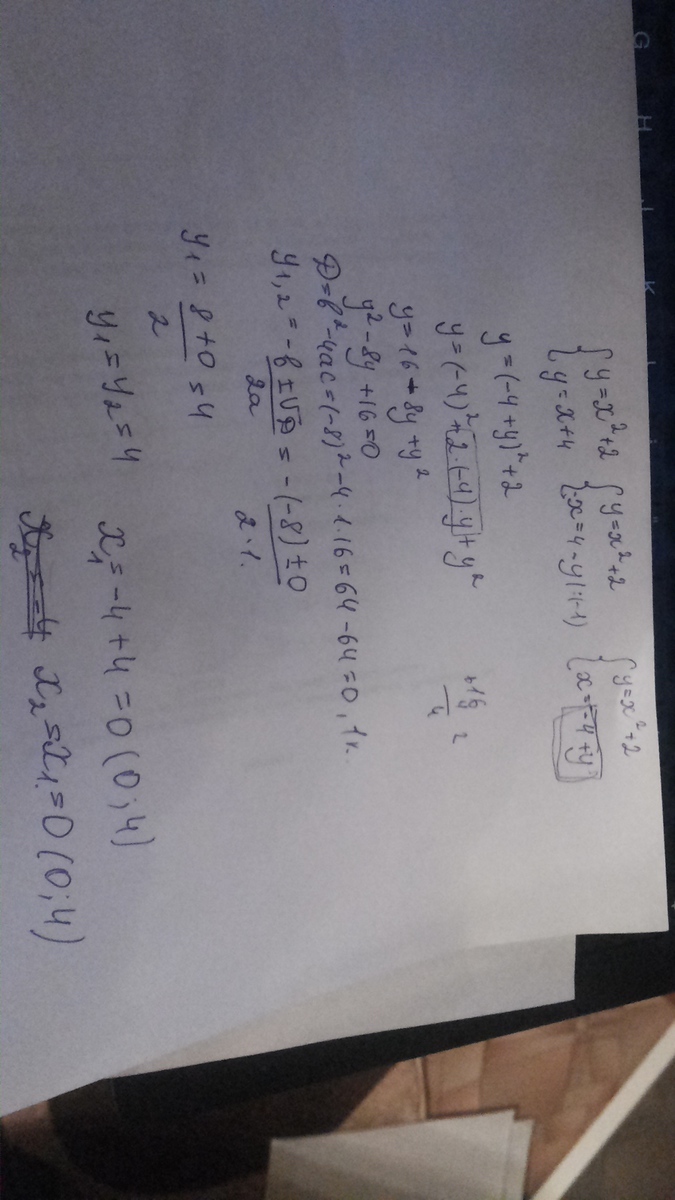 { y=x²+2 { y=x²+2 { y=x²+2
{ y=x+4 { -x=4-y|:(-1) { x=-4+y
y=(-4+y)²+2
y=(-4)²+2·(-4)·y+y² +16/4 =
y=16-8y+y²
y²-8y+16=0
D=b²-4ac=(-8)²-4·1·16=64-64=0, 1к.
y1,2 = -b±√D/2a = -(-8)±0/2·1.
y1 = 8+0/2 =4
y1=y2=4 x1=-4+4=0 (0;4)
x2=-4 x2=x1=0 (0;4)
G H J K L